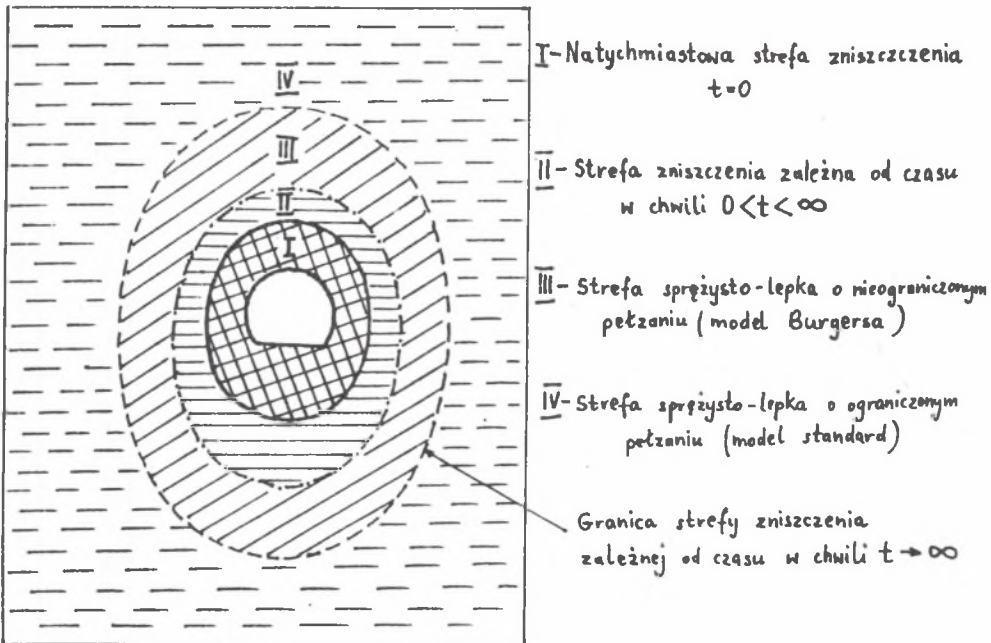 IV
III
II
I
I - Natychmiastowa strefa zniszczenia
t=0
II - Strefa zniszczenia zależna od czasu
w chwili 0<t<∞
III - Strefa sprężysto-lepka o nieograniczonym
pełzaniu (model Burgersa)
IV - Strefa sprężysto-lepka o ograniczonym
pełzaniu (model standard)
Granica strefy zniszczenia
zależnej od czasu w chwili t→∞